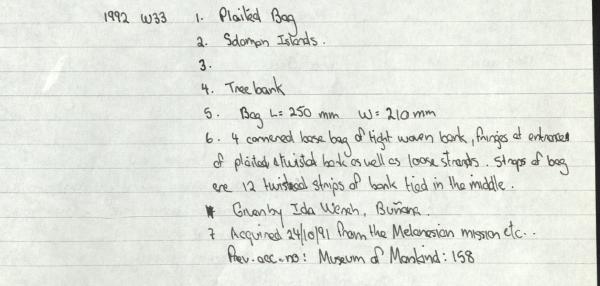 1992 W33 1. Plaited Bag
2. Solomon Islands.
3.
4. Tree bark
5. Bag L= 250 mm W= 210 mm
6. 4 cornered base bag of tight woven bark, fringes at entrance
of plaited & twisted bark as well as loose strands. Straps of bag
are 12 twisted strips of bark tied in the middle.
Given by Ida Wench, Buñana.
7 Acquired 24/10/91 from the Melanesian mission etc..
Prev. acc. no: Museum of Mankind: 158